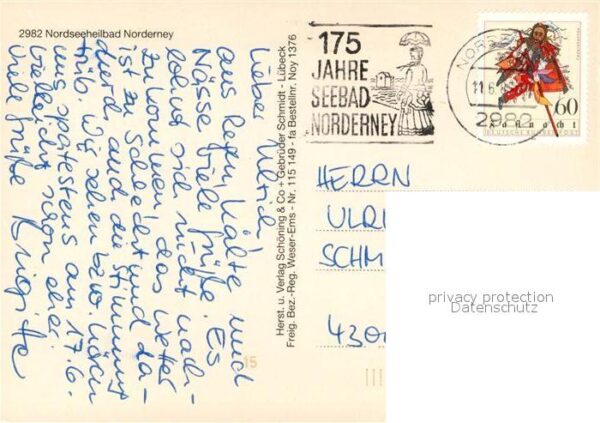 2982 Nordseeheilbad Norderney
Lieber Ulrich,
aus Regen, Kälte und
Nässe viele Grüße. Es
lohnt sich nicht nach-
zukommen, das Wetter
ist zu schlecht und da-
durch auch die Stimmung
trüb. Wir sehen bzw. hören
uns spätestens am 17.6.
Vielleicht schon eher.
Viele Grüße
Herst. u. Verlag Schöning & Co + Gebrüder Schmidt - Lübeck
Freig. Bez.-Reg. Weser-Ems - Nr. 115 149 - fa Bestellnr. Noy 1376
175
JAHRE
SEEBAD
NORDERNEY
NORD
11.6
2982
60
DEUTSCHE BUNDESPOST
HERRN
ULRI
SCHM
4300
privacy protection
Datenschutz
15